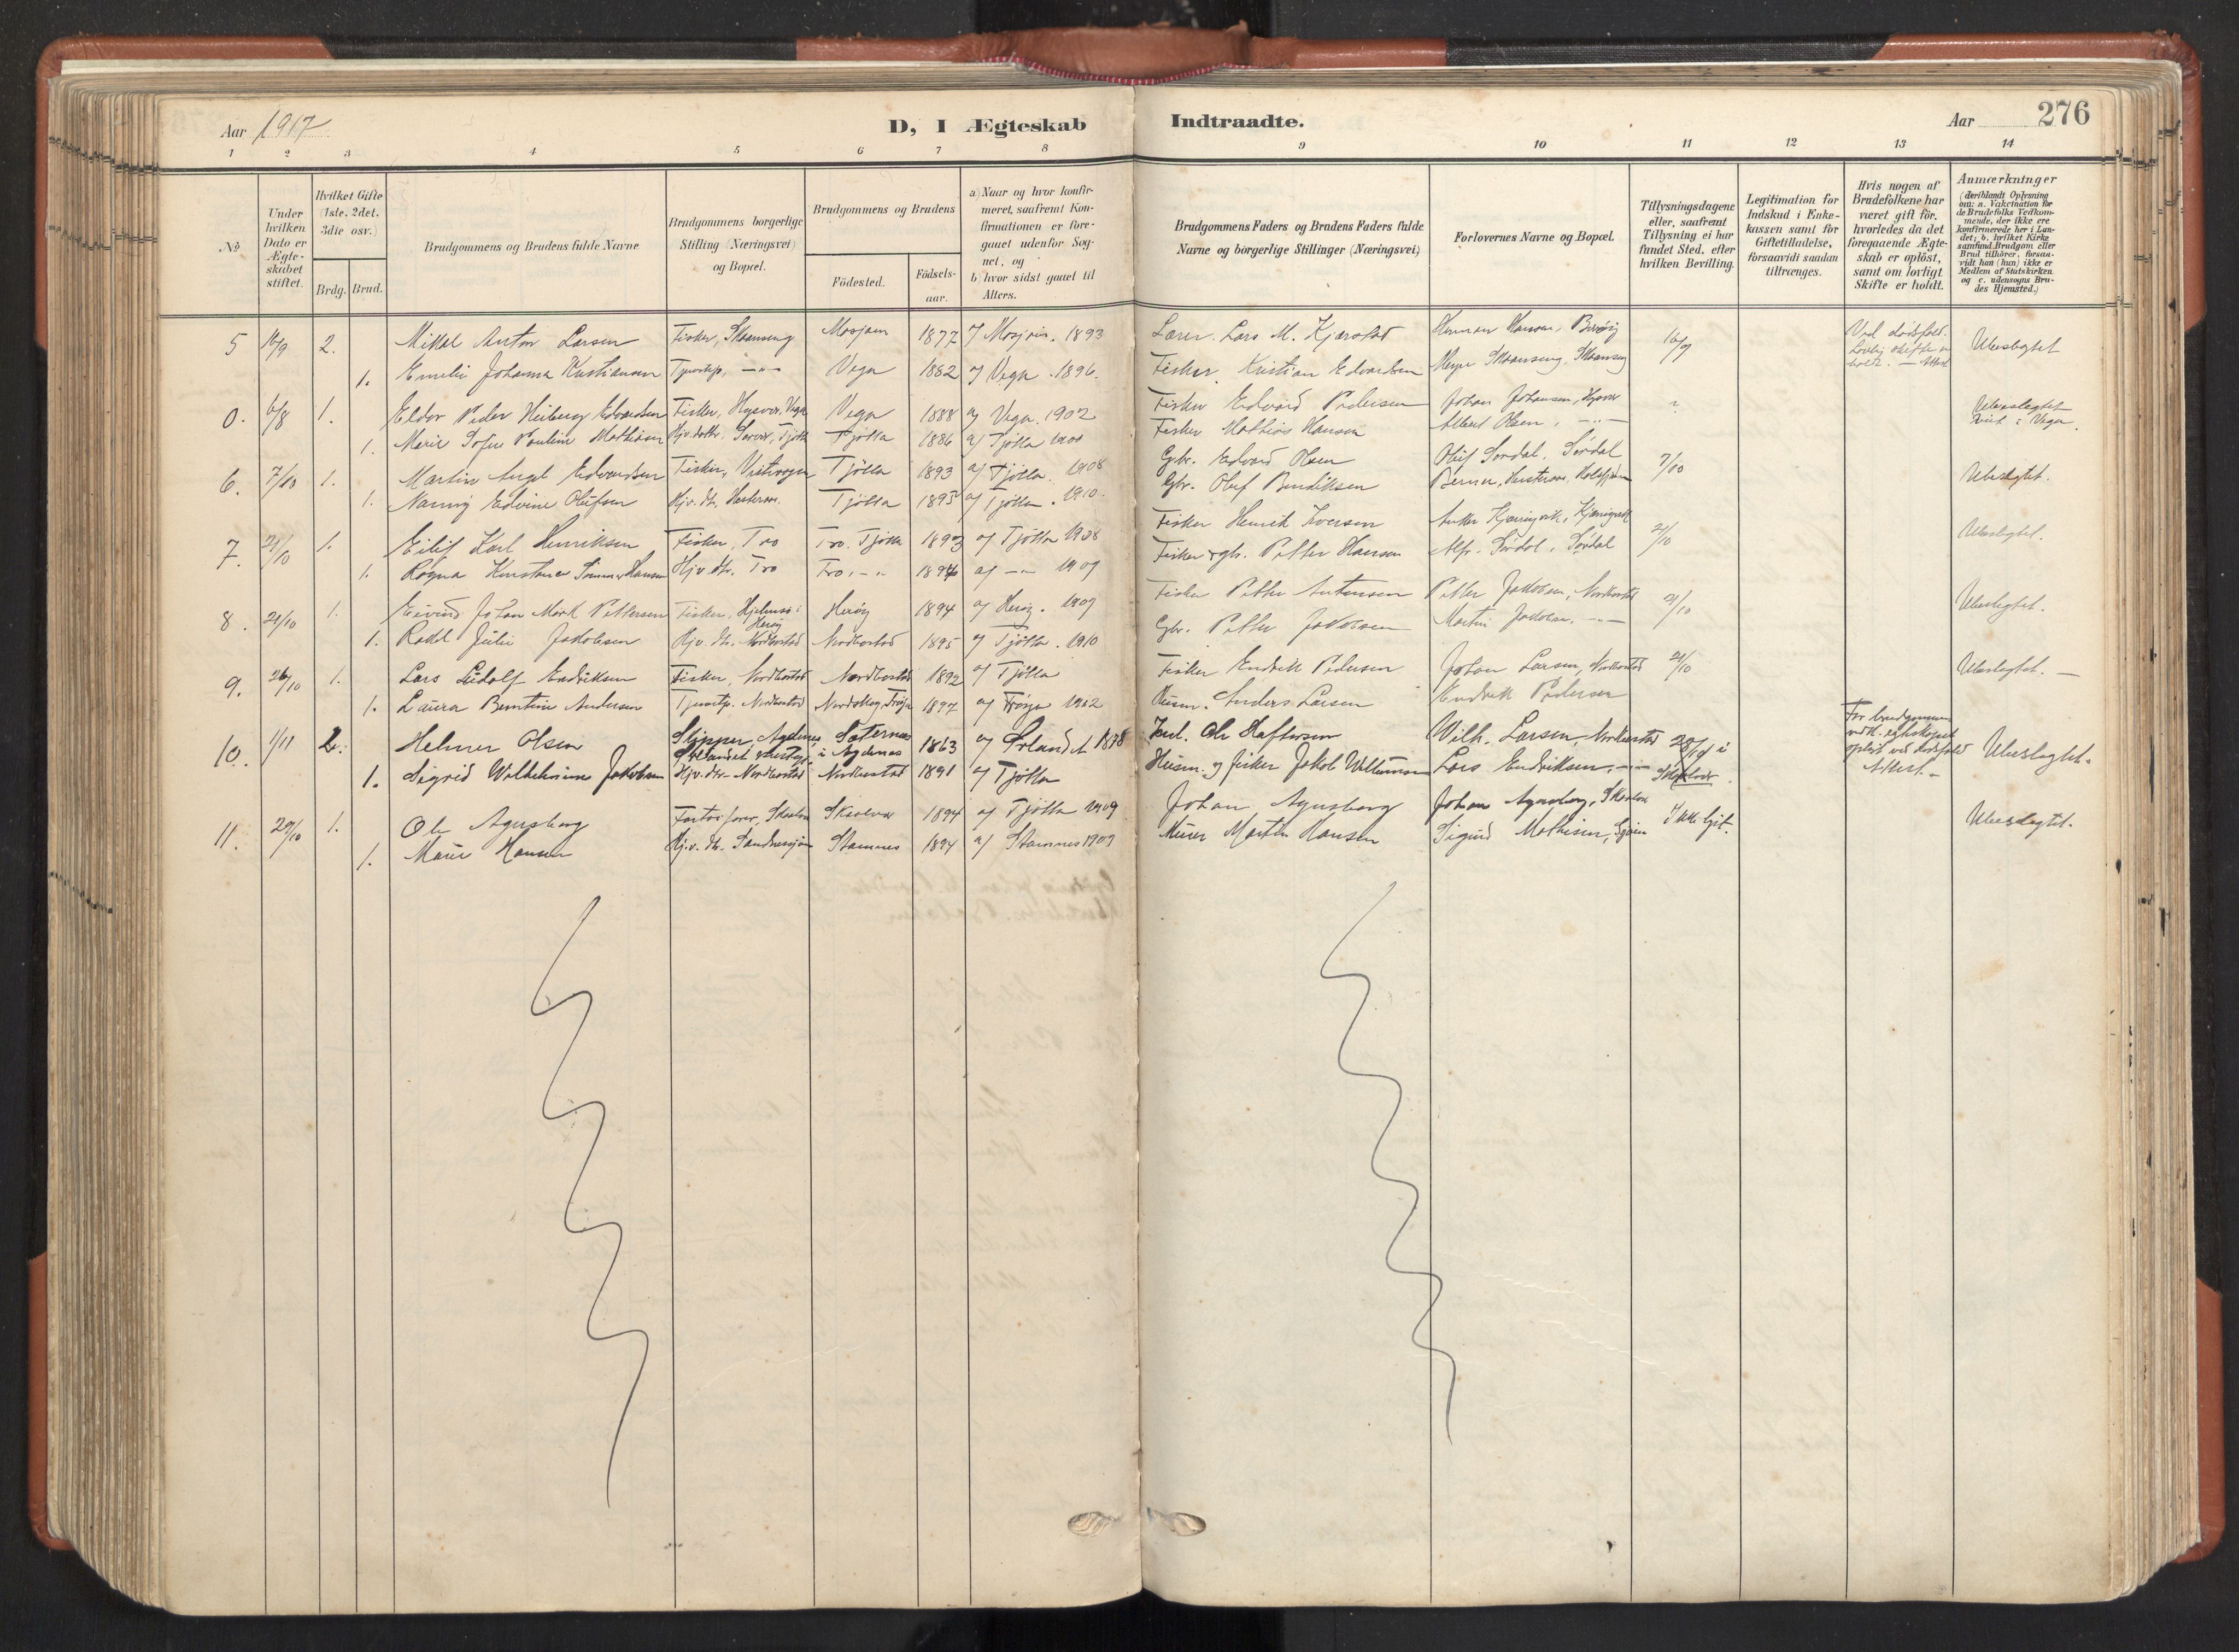 Aar 1917
D, I Ægteskab Indtraadte.
Aar
276
1 2 3 4 5 6 7 8 9 10 11 12 13 14
No
Under hvilken Dato er Ægteskabet stiftet.
Hvilket Gifte (1ste, 2det, 3die osv.)
Brdg. Brud.
Brudgommens og Brudens fulde Navne
Brudgommens borgerlige Stilling (Næringsvei) og Bopæl.
Brudgommens og Brudens
Födested. Födselsaar.
a) Naar og hvor konfirmeret, saafremt Konfirmationen er foregaaet udenfor Sognet, og
b) hvor sidst gaaet til Alters.
Brudgommens Faders og Brudens Faders fulde Navne og borgerlige Stillinger (Næringsvei)
Forlovernes Navne og Bopæl.
Tillysningsdagene eller, saafremt Tillysning ei har fundet Sted, efter hvilken Bevilling.
Legitimation for Indskud i Enkekassen samt for Giftetilladelse, forsaavidt saadan tiltrænges.
Hvis nogen af Brudefolkene har været gift för, hvorledes da det foregaaende Ægteskab er oplöst, samt om lovligt Skifte er holdt.
Anmærkninger (deriblandt Oplysning om: a. Vakcination for de Brudefolks Vedkommende, der ikke ere konfirmerede her i Landet; b. hvilket Kirkesamfund Brudgom eller Brud tilhörer, forsaavidt han (hun) ikke er Medlem af Statskirken og c. udensogns Brudes Hjemsted.)
5 16/9 2. Mikal Anton Larsen Fisker, Skaanseng Mosjøen 1877 af Mosjøen. 1893 Lærer Lars M. Kjærstad Herman Hansen, 16/9 Ved dødsfald. Ubeslegtet
1. Emelie Johanna Kristiansen Vega 1882 af Vega. 1896. Fisker Kristian Edvardsen Meyer Skaanseng, Skaanseng
0. 6/8 1. Eldor Peder Heiberg Edvardsen Fisker, Hysvær, Vega Vega 1888 af Vega. 1902 Fisker Edvard Pedersen Johan Johansen, Hysvær ? Ubeslegtet
1. Marie Sofie Pauline Mathisen Hjv. datter, Tjøtta Tjøtta 1886 af Tjøtta Fisker Mathias Hansen Albert Olsen, -"- Viet i Vega.
6. 7/10 1. Martin Angel Edvardsen Fisker, Tjøtta 1893 af Tjøtta. 1908 Gbr. Edvard Olsen Oluf Sørdal, Sørdal 7/10 Ubeslegtet.
1. Nanny Edvine Olufsen Hjv. dt. Tjøtta 1895 af Tjøtta. 1910. Gbr. Oluf Bendiksen
7. 21/10 1. Eilif Karl Henriksen Fisker, Tro Tro. Tjøtta 1893 af Tjøtta 1908 Fisker Henrik Iversen 21/10 Ubeslegtet.
1. Ragna Hansen Hjv. dtr. Tro Tro, -"- 1894 af -"- 1909 Fisker & gbr. Petter Hansen Alfr. Sørdal, Sørdal
8. 21/10 1. Eivind Johan Mørk Pettersen Fisker, Hjelmsø i Herøy Herøy 1894 af Herøy. 1909 Fisker Petter Antonsen Petter Jakobsen, Nordbostad 21/10 Ubeslegtet.
1. Rakel Julie Jakobsen Hjv. dt. Nordbostad Nordbostad 1895 af Tjøtta. 1910 Gbr. Petter Jakobsen Martin Jakobsen, -"-
9. 26/10 1. Lars Ludolf Endriksen Fisker, Nordbostad Nordbostad 1892 af Tjøtta Fisker Endrik Pedersen Johan Larsen, Nordbostad 21/10 Ubeslegtet. -
1. Laura Berntine Andersen Tjenestp. Nordbostad Nordskag, Frøya 1897 af Frøya 1912 Husm. Anders Larsen Endrik Pedersen
10. 1/11 2. Helmer Olsen Skipper, Agdenes Sæternes i Agdenes 1863 af Ørlandet 1878 Ole Haftorsen Wilh. Larsen, Nordbostad 28/9 i For brudgommen Ubeslegtet.
1. Sigrid Wilhelmine Jakobsen Hjv. dtr. Nordbostad Nordbostad 1891 af Tjøtta Husm. og fisker Jakob Willumsen Lars Endriksen, -"-
11. 29/10 1. Ole Agersborg Skaalvær 1894 af Tjøtta 1909 Johan Agersborg Johan Agersborg, Skaalvær Ubeslegtet.
1. Marie Hansen Hjv. dt. Sandnessjøen Stamnes 1894 af Stamnes 1909 Murer Martin Hansen Sigurd Mathisen,